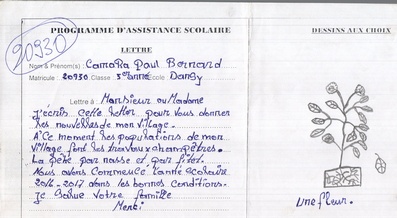 PROGRAMME D'ASSISTANCE SCOLAIRE
DESSINS AUX CHOIX
20930
LETTRE
Nom & Prénom(s): Camara Paul Bernard
Matricule: 20930 Classe 5e année Dansy
Lettre à: Monsieur ou Madame
J'écris cette letter pour vous donner
les nouvelles de mon village.
A Ce moment les populations de mon
village font les travaux champêtres.
La pêche par nasse et par filet.
Nous avons Commencé l'année scolaire
2016-2017 dans les bonnes conditions.
Je Salue votre famille
Merci
une fleur.